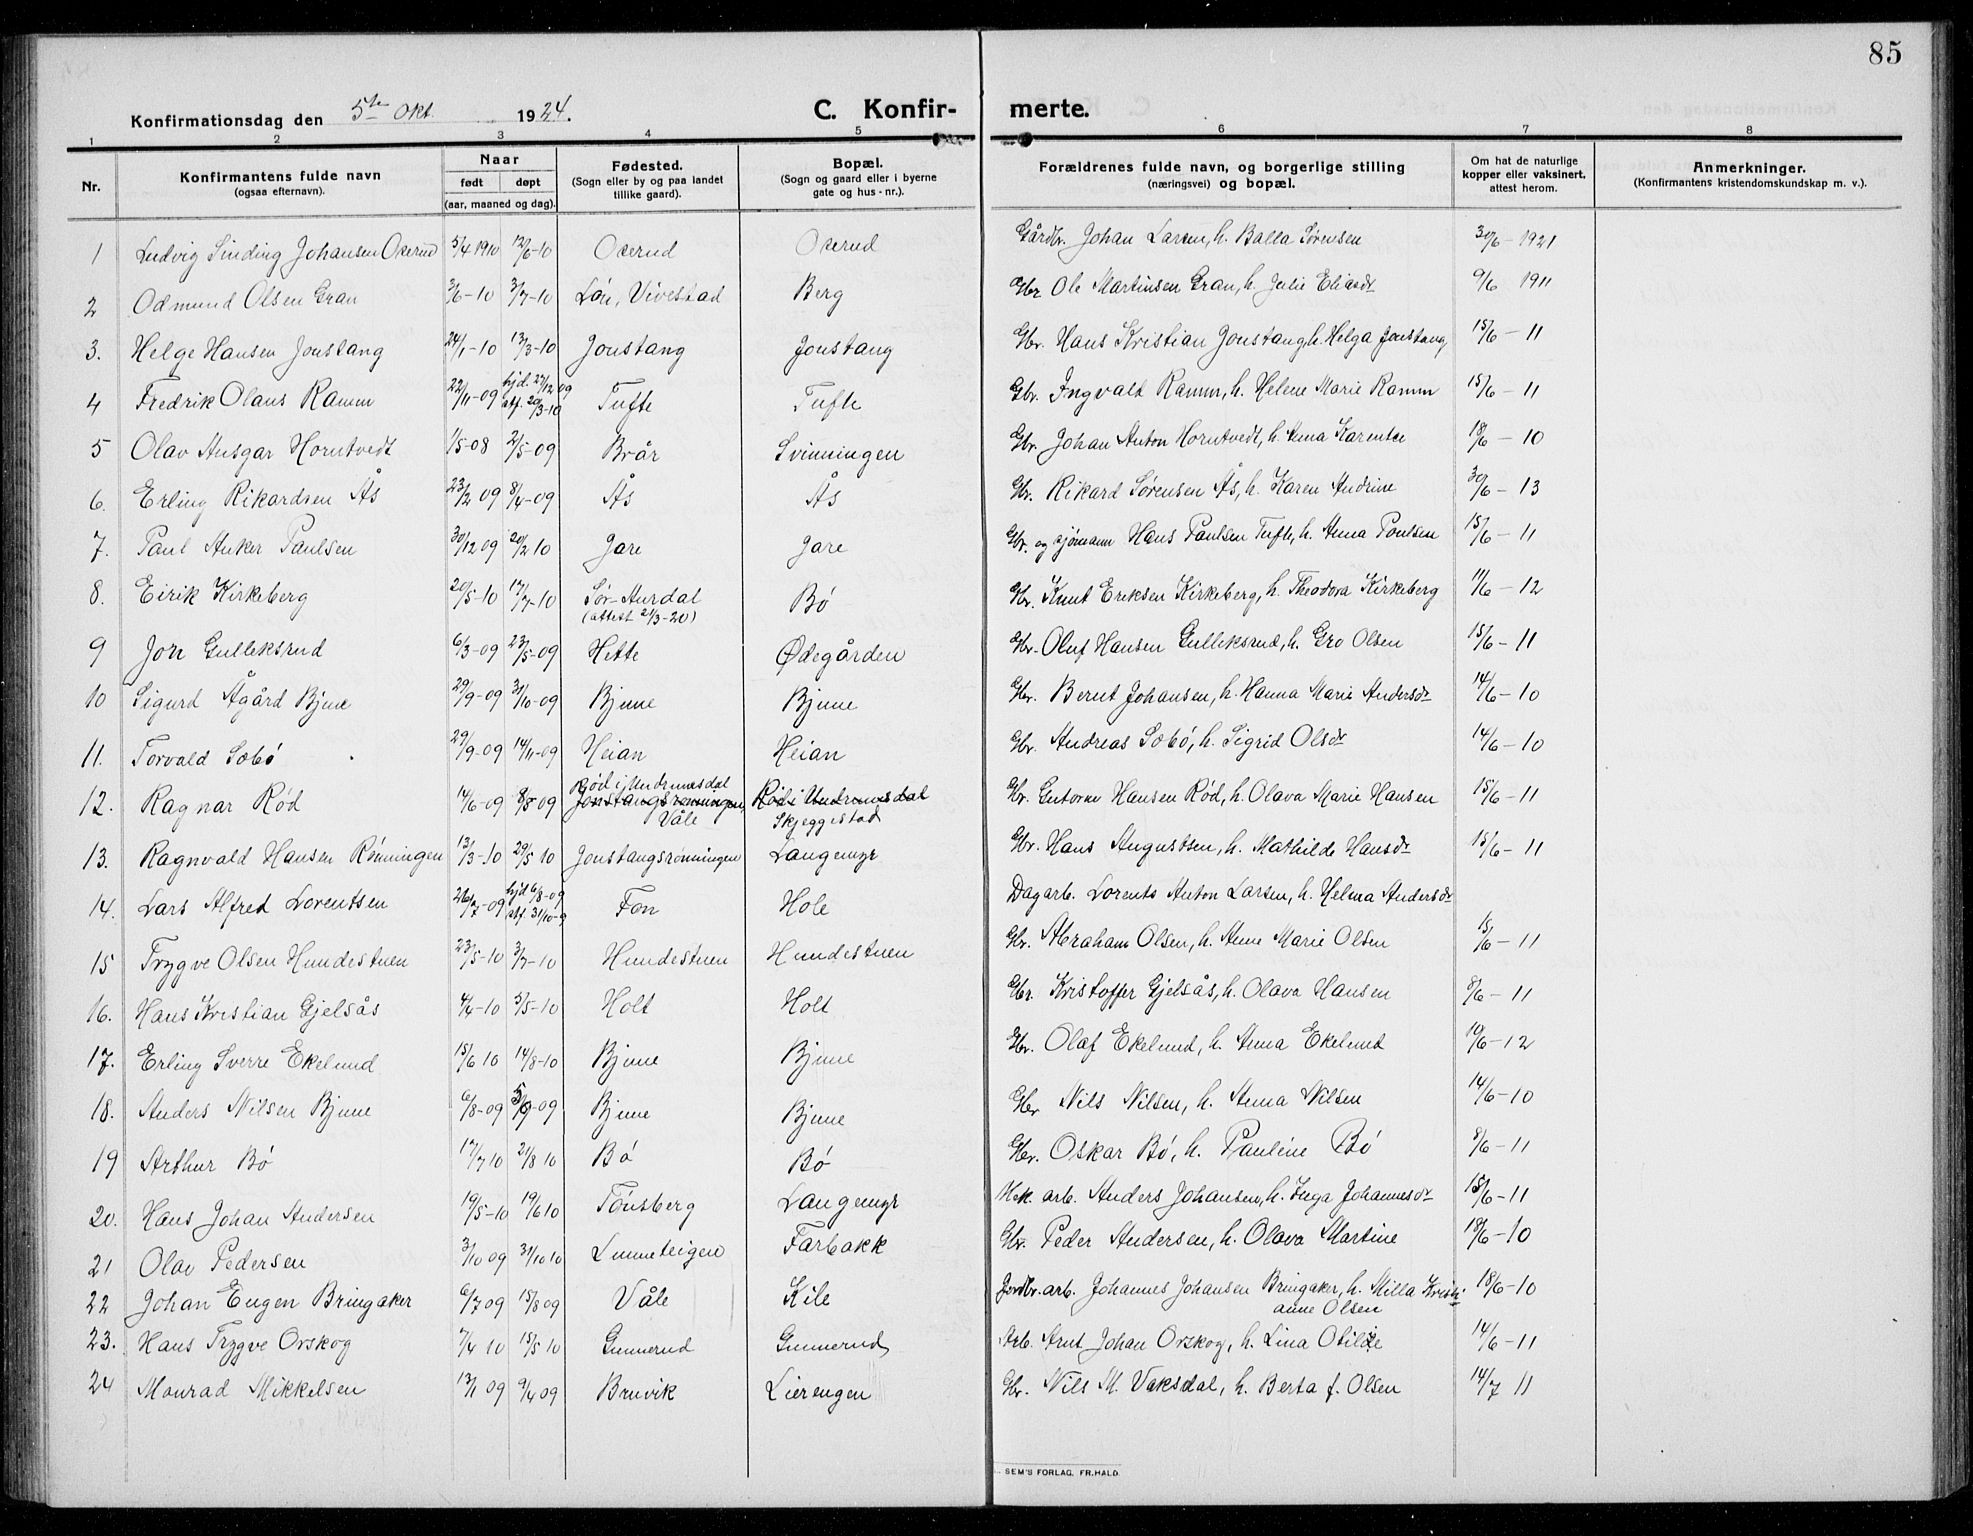 85
Konfirmationsdag den 5te Okt. 1924.
C. Konfirmerte.
1 2 3 4 5 6 7 8
Nr.
Konfirmantens fulde navn
(ogsaa efternavn).
Naar
født døpt
(aar, maaned og dag).
Fødested.
(Sogn eller by og paa landet
tillike gaard).
Bopæl.
(Sogn og gaard eller i byerne
gate og hus-nr.).
Forældrenes fulde navn, og borgerlige stilling
(næringsvei) og bopæl.
Om hat de naturlige
kopper eller vaksinert,
attest herom.
Anmerkninger.
(Konfirmantens kristendomskundskap m. v.).
1 Ludvig Sinding Johansen Oxerud 5/4 1910 12/6-10 Oxerud Oxerud Gårdbr. Johan Larsen, h. Balla Sørensen 30/6-1921
2 Odmund Olsen Gran 3/6-10 3/7-10 Løn, Vivestad Berg Gbr Ole Martinsen Gran, h. Julie Eliasdr 9/6 1911
3. Helge Hansen Jonstang 24/1-10 13/3-10 Jonstang Jonstang Gbr. Hans Kristian Jonstang, h. Helga Jonstang 15/6-11
4 Fredrik Olaus Ramm 22/11-09 hjd. 27/12 09 stf. 20/3-10 Tufte Tufte Gbr. Ingvald Ramm, h. Helene Marie Ramm 15/6-11
5 Olav Ansgar Horntvedt 1/5-08 2/5-09 Brår Svinningen Gbr. Johan Anton Horntvedt, h. Anna Karentse 18/6-10
6. Erling Rikardsen Ås 23/2 09 8/4-09 Ås Ås Gbr. Rikard Sørensen Ås, h. Karen Andrine 30/6-13
7. Paul Anker Paulsen 30/12 09 20/2 10 Jare Jare Gbr. og sjømann Hans Paulsen Tufte, h. Anna Poulsen 15/6-11
8. Eirik Kirkeberg 20/5-10 17/7-10 Sør-Aurdal (attest 21/3-20) Bø Gbr. Knut Eriksen Kirkeberg, h. Theodora Kirkeberg 11/6-12
9 Jon Gulleksrud 6/3-09 23/5-09 Hette Ødegården Gbr. Oluf Hansen Gulleksrud, h. Gro Olsen 15/6-11
10 Sigurd Ågård Bjune 29/9-09 31/10-09 Bjune Bjune Gbr. Bernt Johansen, h. Hanna Marie Andersdr 14/6-10
11. Torvald Sæbø 29/9-09 14/11-09 Heian Heian Gbr. Andreas Sæbø, h. Sigrid Olsdr 14/6-10
12. Ragnar Rød 14/6-09 8/8 09 Rød i Undrumsdal Jonstangsrønningen, Våle Rød i Undrumsdal Skjeggestad Gbr. Gutorm Hansen Rød, h. Olava Marie Hansen 15/6-11
13. Ragnvald Hansen Rønningen 13/3-10 29/5 10 Jonstangsrønningen Langemyr Gbr. Hans Augustsen, h. Mathilde Hansdr 15/6-11
14. Lars Alfred Lorentsen 26/7-09 hjd 6/8-09 stf. 31/10-9 Fon Hole Dagarb. Lorents Anton Larsen, h. Helma Andersdr
15 Trygve Olsen Hundestuen 23/5-10 3/7-10 Hundestuen Hundestuen Gbr. Abraham Olsen, h. Anne Marie Olsen 15/6-11
16. Hans Kristian Gjelsås 4/4-10 5/5-10 Holt Holt Gbr. Kristoffer Gjelsås, h. Olava Hansen 8/6-11
17. Erling Sverre Ekelund 15/6 10 14/8-10 Bjune Bjune Gbr. Olaf Ekelund, h. Anna Ekelund 10/6-12
18. Anders Nilsen Bjune 6/8-09 5/9-09 Bjune Bjune Gbr Nils Nilsen, h. Anna Nilsen 14/6-10
19 Arthur Bø 17/7 10 21/8 10 Bø Bø Gbr. Oskar Bø, h. Pauline Bø 8/6-11
20. Hans Johan Andersen 19/5-10 19/6 10 Tønsberg Langemyr Mek. arb. Anders Johansen, h. Inga Johannesdr 15/6-11
21 Olav Pedersen 3/10 09 31/10 10 Limeteigen Farbakk Gbr. Peder Andersen, h. Olava Martine 18/6-10
22 Johan Eugen Bringaker 6/7 09 15/8 09 Våle Kile Jordbr. arb. Johannes Johansen Bringaker, h. Milla Kristianne Olsen 18/6-10
23. Hans Trygve Orskog 7/4 10 15/5 10 Gunnerud Gunnerud Arb. Arnt Johan Orskog, h. Lina Otilie 14/6-11
24 Monrad Mikkelsen 13/1 09 9/4 09 Bruvik Lierengen Gbr. Nils M. Vaksdal, h. Berta f. Olsen 14/7 11
SEM'S FORLAG, FR.HALD.